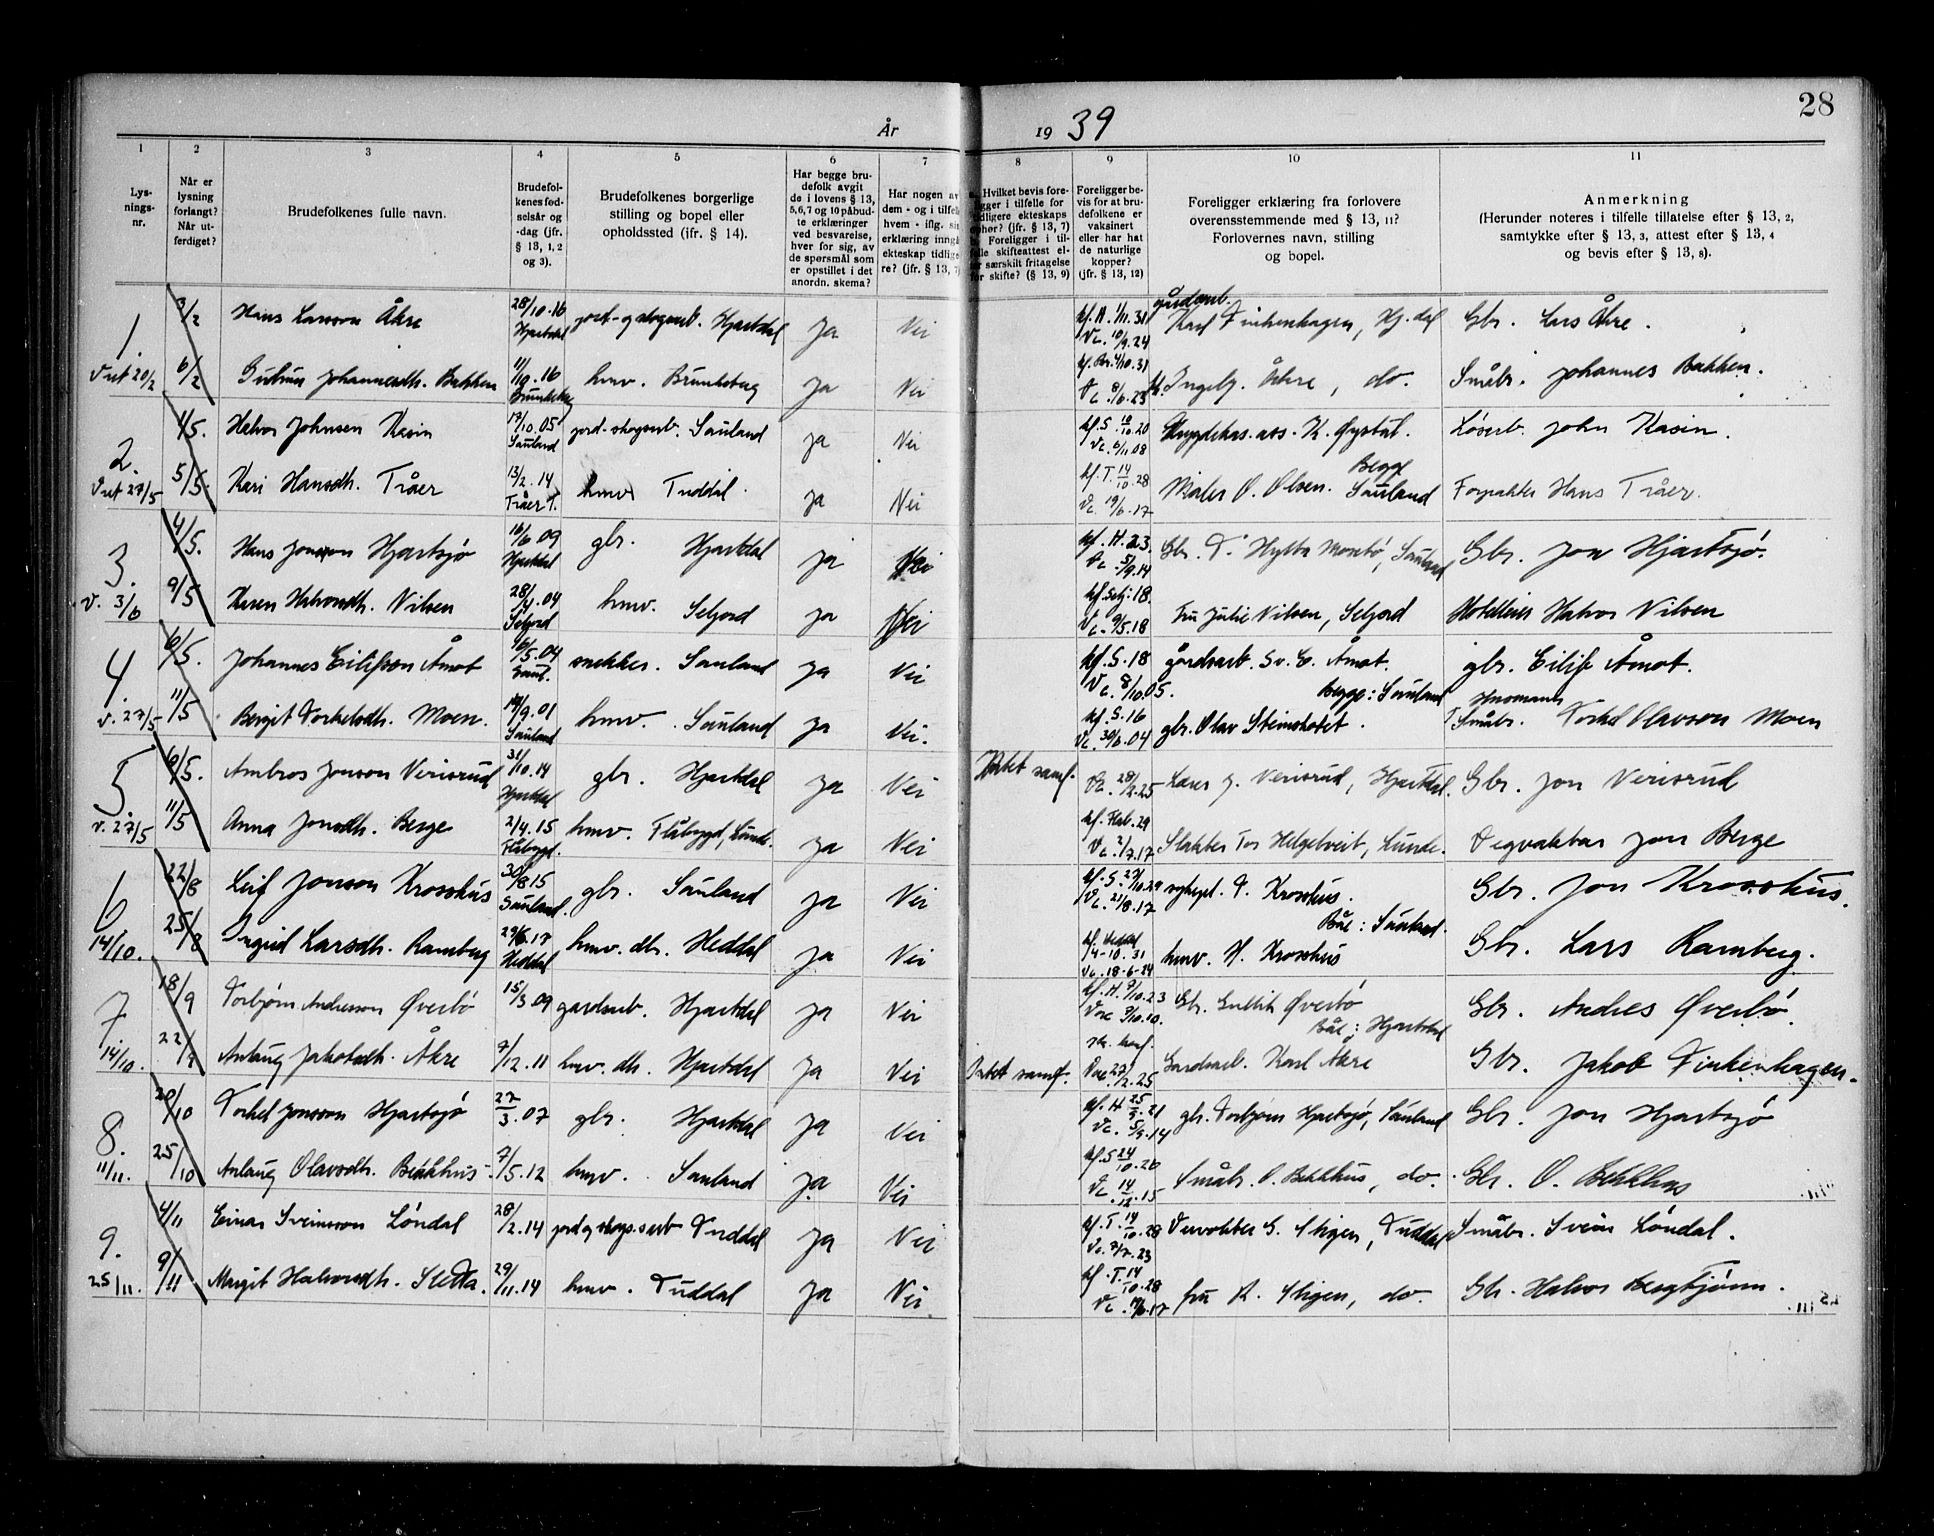 28
År 1939
1 2 3 4 5 6 7 8 9 10 11
Lys-
nings-
nr.
Når er
lysning
forlangt?
Når ut-
ferdiget?
Brudefolkenes fulle navn.
Brudefol-
kenes fød-
selsår og
-dag (jfr.
§ 13, 1, 2
og 3).
Brudefolkenes borgerlige
stilling og bopel eller
opholdssted (jfr. § 14).
Har begge bru-
defolk avgit
de i lovens § 13,
5,6,7 og 10 påbud-
te erklæringer
ved besvarelse,
hver for sig, av
de spørsmål som
er opstillet i det
anordn. skema?
Har nogen av
dem - og i tilfelle
hvem - iflg. sin
erklæring inngå
ekteskap tidlige
re? (jfr. § 13, 7)
Hvilket bevis fore-
gger i tilfelle for
dligere ekteskaps
phør? (jfr. § 13, 7)
Foreligger i til-
felle skifteattest el-
er særskilt fritagelse
for skifte? (§ 13, 9)
Foreligger be-
vis for at bru-
defolkene er
vaksinert
eller har hat
de naturlige
kopper?
(jfr. § 13, 12)
Foreligger erklæring fra forlovere
overensstemmende med § 13, 11?
Forlovernes navn, stilling
og bopel.
Anmerkning
(Herunder noteres i tilfelle tillatelse efter § 13, 2,
samtykke efter § 13, 3, attest efter § 13, 4
og bevis efter § 13, 8).
1. 3/2 Hans Larsson Åkre 28/10.16 Hjartdal jord- og skogsarb. Hjartdal Ja Nei kf. H. 1/11.31 Vc. 10/9.24 gårdarb. Karl Finkenhagen, Hj.dal Gbr. Lars Åkre.
Vut 20/2 6/2 Johannesdh. Bakken 11/10.16 Brunkeberg hmv. Brunkeberg Ja Nei kf. Br. 4/10.31 Vc. 8/6.23 Ingebg. Åkre, do. Småbr. Johannes Bakken.
2. 4/5. Halvor Johnsen Kasin 17/10.05 Sauland jord-skogsarb. Sauland Ja Nei kf. S. 10/10.20 Vc. 6/11.08 K. Øystat. Løsarb. John Kasin.
Vut 27/5 5/5. Kari Hansdh. Tråer 13/2.14 Tråer T. hmv Tuddal. Ja Nei kf. T. 14/10.28 Vc. 19/6.17 Maler O. Olsen. Begge Sauland Forpakter Hans Tråer.
3. 4/5. Hans Jonsson Hjartsjø 16/6.09 Hjartdal gbr. Hjartdal Ja Nei kf. H. 23. Vc. 5/9.14 Gbr. T. Hytta Mosebø, Sauland Gbr. Jon Hjartsjø.
v. 3/6 9/5 Karen Halvorsdh. Nilsen 28/4.04 Seljord hmv. Seljord Ja Nei kf. Selj. 18. Vc. 9/5.18 Fru Julie Nilsen, Seljord Hotelleier Halvor Nilsen
4. 6/5. Johannes Eilifsson Åmot 16/5.04 Saul. snekker. Sauland Ja Nei kf. S. 18 Vc. 8/10.05. gårdsarb. Sv. E. Åmot. Begge: Sauland gbr. Eilif Åmot.
v. 27/5 11/5 Bergit Torkelsdh. Moen. 14/9.01 Sauland hmv. Sauland Ja Nei. kf. S. 16 Vc. 30/6.04 gbr. Olav Steinstodet. Husmann Småbr. Torkel Olavson Moen
5. 6/5. Ambros Jonson Verisrud 31/10.14 Hjartdal gbr. Hjartdal Ja Nei Intet samf. Vc. 28/2.25 Lærer g. Verisrud, Hjartdal. Gbr. Jon Verisrud
v. 27/5 11/5 Anna Jonsdh. Berge 2/4.15 Flåbygd. hmv. Flåbygd, Lunde. Ja Nei kf. Flåb. 29 Vc. 2/7.17 Slakter Tor Helgetveit, Lunde. Vegvakter Jon Berge
6. 22/8 Leif Jonson Krosshus 30/8 15 Sauland. gbr. Sauland Ja Nei kf. S. 27/10.29 Vc. 21/8.17 sykepl. T. Krosshus. Båe: Sauland. Gbr. Jon Krosshus.
14/10. 25/8 Ingrid Larsdh. Ramberg 29/6.17 Heddal hmv. dtr. Heddal Ja Nei kf. Heddal 4-10.31 Vc. 18-6-24 hmv. H. Krosshus Gbr. Lars Ramberg.
7 18/9 Torbjørn Andresson Øverbø 15/3 09 gardsarb. Hjartdal Ja Nei kf. H. 9/10.23 Vac 3/10.10. Gbr. Gullik Øverbø Båe: Hjartdal Gbr. Andres Øverbø.
14/10. 22/9 Anlaug Jakobsdh. Åkre 7/12.11 hmv. dh. Hjartdal Ja Nei Intet samf. Vac 27/2.25 Gardsarb. Karl Åkre Gbr. Jakob Finkenhagen.
8. 20/10 Torkel Jonsson Hjartsjø 27/3.07 gbr. Hjartdal Ja Nei kf. H 25/9.21 Vc. 5/9.14 gbr. Torbjørn Hjartsjø, Sauland Gbr. Jon Hjartsjø
11/11. 25/10 Anlaug Olavsdh. Bekkhus 7/5.12 hmv. Sauland Ja. Nei kf. S 24/10.26 Vc. 14/12.15 Småbr. O. Bekkhus, do. Gbr. O. Bekkhus
9. 4/11 Einar Sveinsson Løndal 28/2.14 jord og skogs.arb Tuddal Ja Nei kf. T. 14/10.28 Vc. 7/7.23 Vervokter G. Stigen, Tuddal Småbr. Svein Løndal.
25/11. 9/11 Margit Halvorsdh. Sletta. 29/11.14 hmv. Tuddal Ja Nei kf. T. 14/10.28 Vc. 19/6.17 fru K. Stigen, do. Gbr. Halvor Bergtjønn.